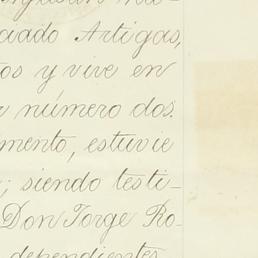 Artigas,
y vive en
número dos.
estuvie
; siendo testi-
Don Jorge Ro-
dependientes